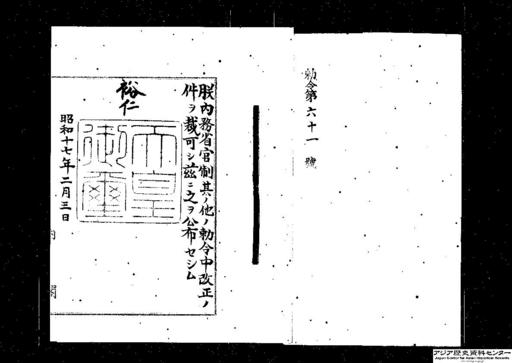 勅令第六十一號
朕内務省官制其ノ他ノ勅令中改正ノ
件ヲ裁可シ茲ニ之ヲ公布セシム
裕仁
天皇
御璽
昭和十七年二月三日
内閣
アジア歴史資料センター
Japan Center for Asian Historical Records